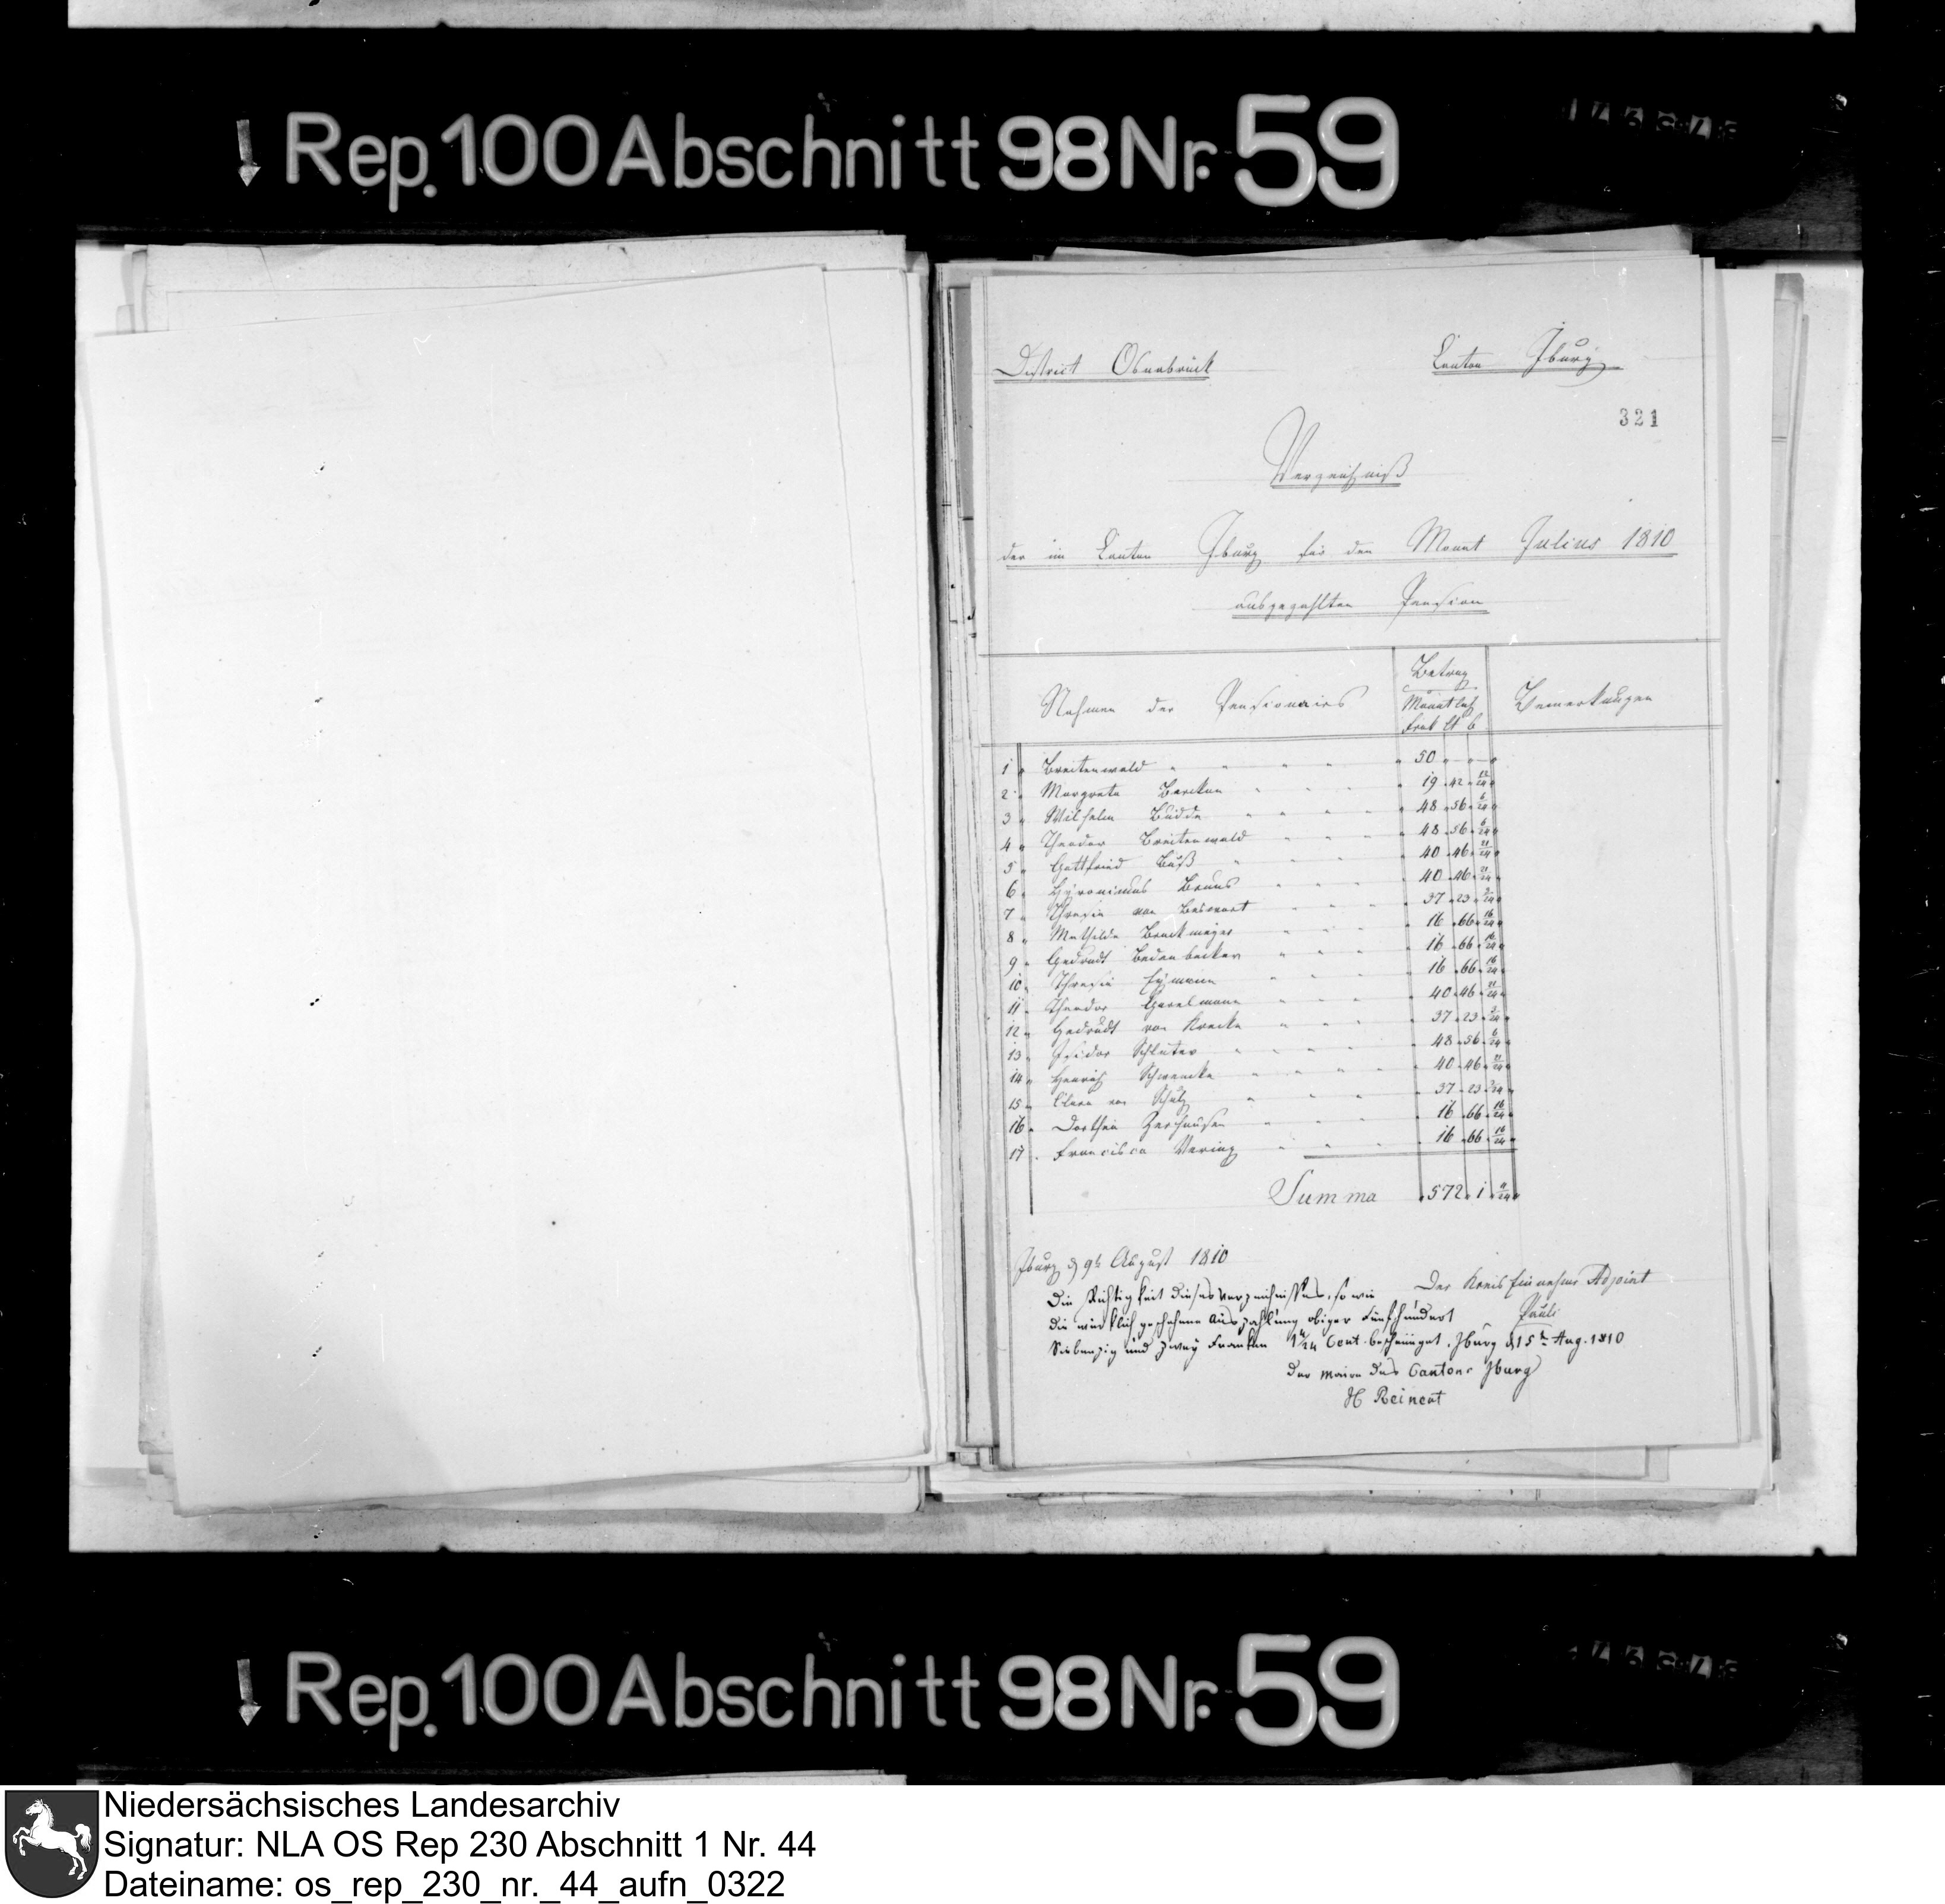 Rep. 100 Abschnitt 98 Nr. 59
District Osnabrück Canton Iburg
321
Verzeichniß
der im Canton Iburg für den Monat Julius 1810
ausgezahlten Pension
Nahmen der Pensionairs Betrag Monatlich Bemerkungen
Frank Ct
1 Breitenwald 50
2 Margreta 19 42
3 Wilhelm Budde 48 56 6/24
4 Theodor Breitenwald 48 56 6/24
5 Gottfried Buß 40 46 21/24
6 Hyronimus Bruns 40 46 21/24
7 Thresia von 37 23 3/24
8 Mathilda Brockmeyer 16 66 16/24
9 Gedrudt Bodenbecker 16 66 16/24
10 Thresia 16 66 16/24
11 Theodor 40 46 21/24
12 Gedrudt von Kreke 37 23 3/24
13 Isidor Schluter 48 56 6/24
14 Henrich Schwencke 40 46 21/24
15 Clara von Schütz 37 23 3/24
16 Dorthea 16 66 16/24
17 Francisca Vering 16 66 16/24
Summa 572 1 9/24
Iburg d 9t August 1810
Der Kreis Einnehmer Adjoint
Die Richtigkeit dieses Verzeichnisses, so wie
Pauli
die wirklich geschehene Auszahlung obiger Fünfhundert
Siebenzig und zwey Franken 1 9/24 Cent. bescheiniget. Iburg d 15t Aug. 1810
Der Maire des Cantons Iburg
H Reinert
Rep. 100 Abschnitt 98 Nr. 59
Niedersächsisches Landesarchiv
Signatur: NLA OS Rep 230 Abschnitt 1 Nr. 44
Dateiname: os_rep_230_nr._44_aufn_0322